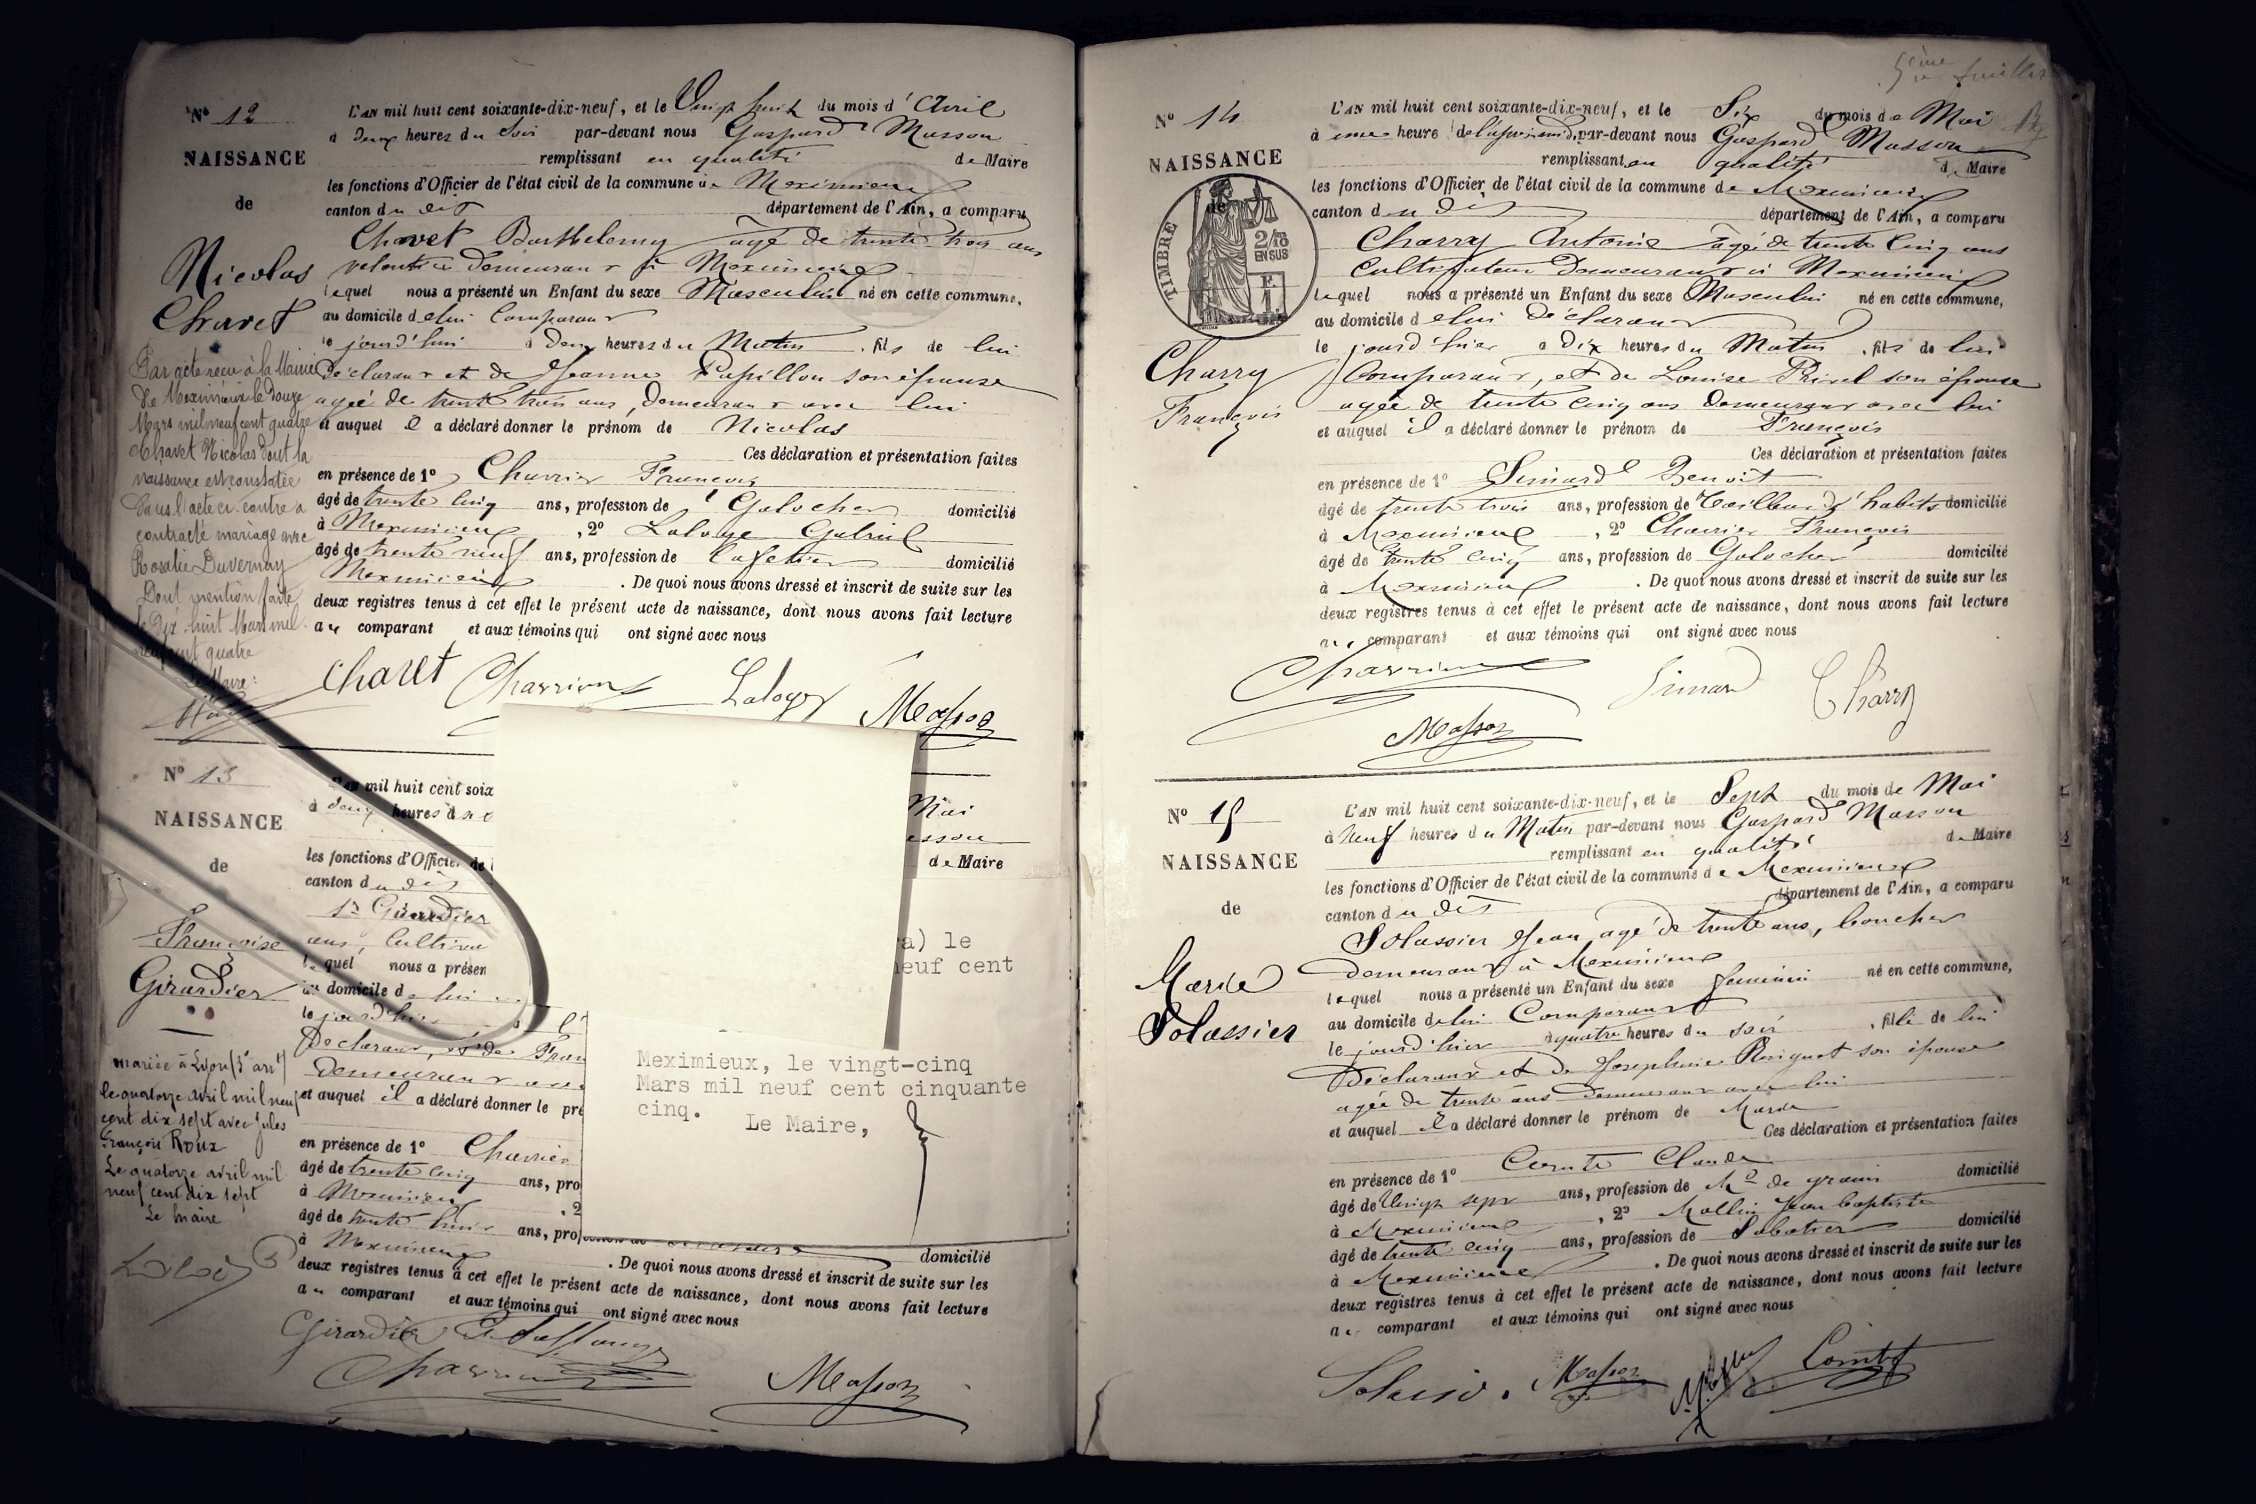 N° 12
NAISSANCE
de
Nicolas
Chavet
Par acte reçu à la Mairie
de Meximieux le douze
Mars mil neuf cent quatre
Chavet Nicolas dont la
naissance est constatée
dans l'acte ci-contre a
contracté mariage avec
Rosalie Duvernay
Dont mention faite
le dix huit Mars mil
neuf cent quatre
Le Maire:
L'AN mil huit cent soixante-dix-neuf, et le Vingt huit du mois d'Avril
à Deux heures du Soir par-devant nous Gaspard Masson
remplissant en qualité de Maire
les fonctions d'Officier de l'état civil de la commune de Meximieux
canton du dit département de l'Ain, a comparu
Chavet Barthelemy agé de trente trois ans
demeurant à Meximieux
lequel nous a présenté un Enfant du sexe Masculin né en cette commune,
au domicile de lui Comparant
le jourd'hui à Deux heures du Matin, fils de lui
Déclarant et de Jeanne Papillon son épouse
agée de trente trois ans, demeurant avec lui
et auquel il a déclaré donner le prénom de Nicolas
Ces déclaration et présentation faites
en présence de 1° Charrier François
âgé de trente cinq ans, profession de Galocher domicilié
à Meximieux, 2° Laloye Gabriel
âgé de trente neuf ans, profession de Cafetier domicilié
Meximieux. De quoi nous avons dressé et inscrit de suite sur les
deux registres tenus à cet effet le présent acte de naissance, dont nous avons fait lecture
au comparant et aux témoins qui ont signé avec nous
Chavet Charrier Laloye Masson
N° 13
NAISSANCE
de
Françoise
Girardier
mariée à Lyon (3e arrt)
le quatorze avril mil neuf
cent dix sept avec Jules
François Roux
Le quatorze avril mil
neuf cent dix sept
Le Maire
L'AN mil huit cent soix
à deux heures du
Mai
asson
de Maire
les fonctions d'Officier de l
canton du dit
Girardier
ans, Cultiva
lequel nous a présen
au domicile de lui
le jourd'hui
Déclarant, et de Fran
Demeurant ave
et auquel il a déclaré donner le pré
en présence de 1° Charrier
âgé de trente cinq ans, pro
à Meximieux, 2
âgé de trente huit ans, pro
domicilié
à Meximieux. De quoi nous avons dressé et inscrit de suite sur les
deux registres tenus à cet effet le présent acte de naissance, dont nous avons fait lecture
au comparant et aux témoins qui ont signé avec nous
Girardier
Charrier Masson
a) le
neuf cent
Meximieux, le vingt-cinq
Mars mil neuf cent cinquante
cinq. Le Maire,
5ème feuillet
N° 14
NAISSANCE
de
TIMBRE
2/10
EN SUS
Charry
François
L'AN mil huit cent soixante-dix-neuf, et le Six du mois de Mai
à une heure de l'après midi, par-devant nous Gaspard Masson
remplissant en qualité de Maire
les fonctions d'Officier de l'état civil de la commune de Meximieux
canton du dit département de l'Ain, a comparu
Charry Antoine agé de trente cinq ans
Cultivateur Demeurant à Meximieux
lequel nous a présenté un Enfant du sexe Masculin né en cette commune,
au domicile de lui Déclarant
le jourd'hier à Dix heures du Matin, fils de lui
Comparant, et de Louise son épouse
agée de trente cinq ans Demeurant avec lui
et auquel il a déclaré donner le prénom de François
Ces déclaration et présentation faites
en présence de 1° Simard Benoit
âgé de trente trois ans, profession de Tailleur d'habits domicilié
à Meximieux, 2° Charrier François
âgé de trente cinq ans, profession de Galocher domicilié
à Meximieux. De quoi nous avons dressé et inscrit de suite sur les
deux registres tenus à cet effet le présent acte de naissance, dont nous avons fait lecture
au comparant et aux témoins qui ont signé avec nous
Charrier Simard Charry
Masson
N° 15
NAISSANCE
de
Marie
Solassier
L'AN mil huit cent soixante-dix-neuf, et le Sept du mois de Mai
à Neuf heures du Matin par-devant nous Gaspard Masson
remplissant en qualité de Maire
les fonctions d'Officier de l'état civil de la commune de Meximieux
canton du dit département de l'Ain, a comparu
Solassier Jean agé de trente ans, boucher
demeurant à Meximieux
lequel nous a présenté un Enfant du sexe féminin né en cette commune,
au domicile de lui Comparant
le jourd'hier à quatre heures du soir, fille de lui
Déclarant et de Josephine son épouse
agée de trente ans Demeurant avec lui
et auquel il a déclaré donner le prénom de Marie
Ces déclaration et présentation faites
en présence de 1° Comte Claude
âgé de Vingt sept ans, profession de Md de grains domicilié
à Meximieux, 2° Mollin Jean Baptiste
âgé de trente cinq ans, profession de Sabotier domicilié
à Meximieux. De quoi nous avons dressé et inscrit de suite sur les
deux registres tenus à cet effet le présent acte de naissance, dont nous avons fait lecture
au comparant et aux témoins qui ont signé avec nous
Masson Comte